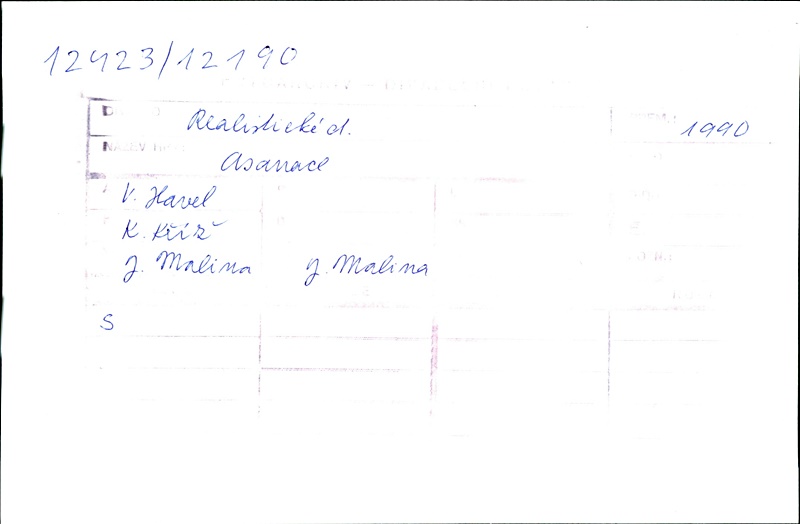 12423/12190
Realistické d. 1990
Asanace
V. Havel
K. Kříž
J. Malina J. Malina
S